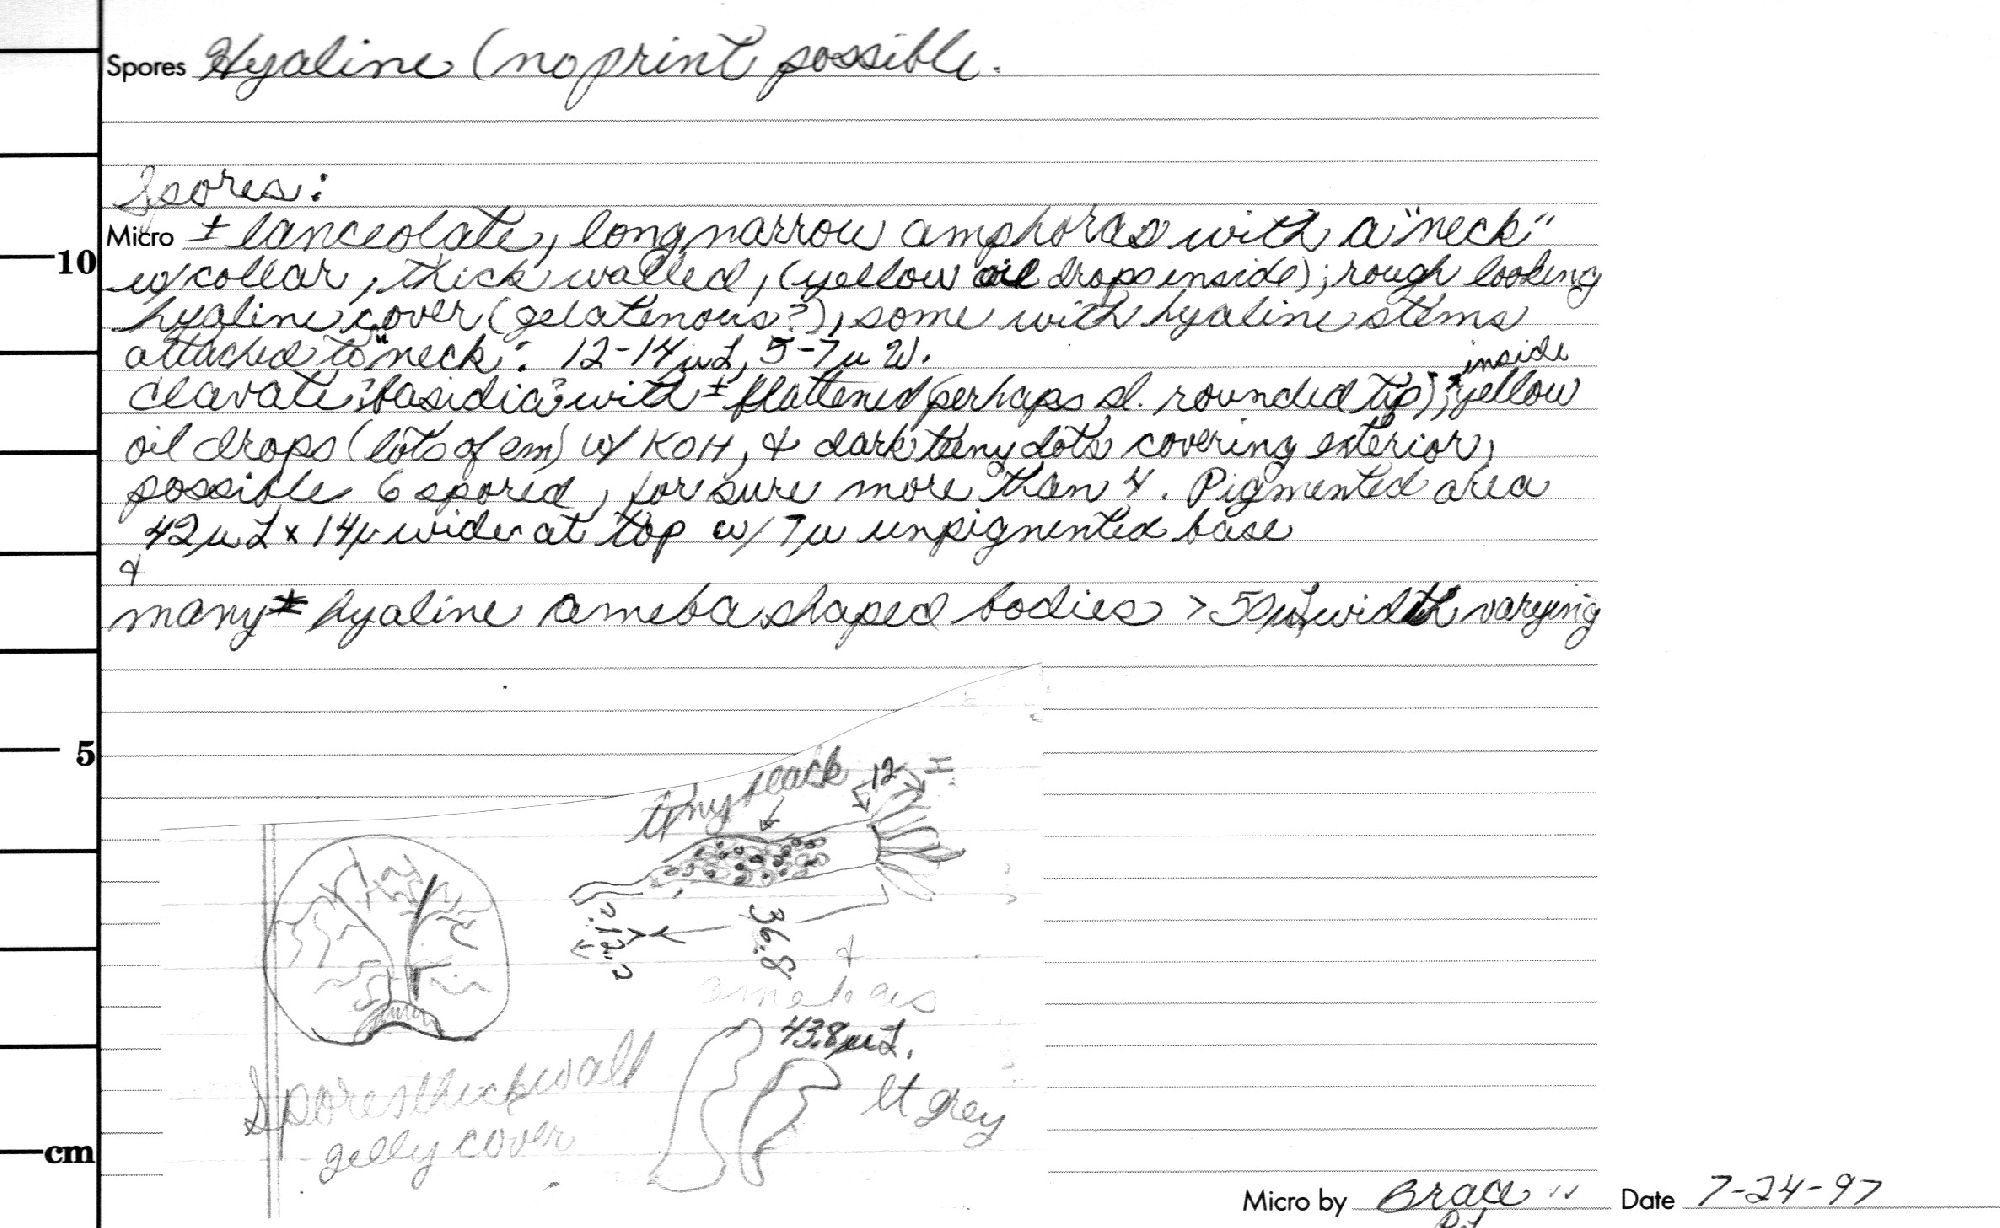 Spores Hyaline (no print possible.
Spores:
Micro ± lanceolate, long narrow amphoras with a "neck"
10
w/ collar, thick walled, (yellow oil drops inside); rough looking
hyaline cover (gelatenous?), some with hyaline stems
attached to "neck". 12-14µ L, 5-7µ W.
inside
clavate "basidia" with ± flattened (perhaps sl. rounded tip); yellow
oil drops (lots of em) w/ KOH, & dark teeny dots covering exterior,
possible 6 spored, for sure more than 4. Pigmented area
42µ L x 14µ wide at top w/ 7µ unpigmented base
&
many ± hyaline ameba shaped bodies > 50µ L width varying
5
tiny black
12
36.8
?12?
&
amebas
43.8µ L.
lt grey
Spores thick wall
gelly cover
cm
Micro by Brace " Date 7-24-97